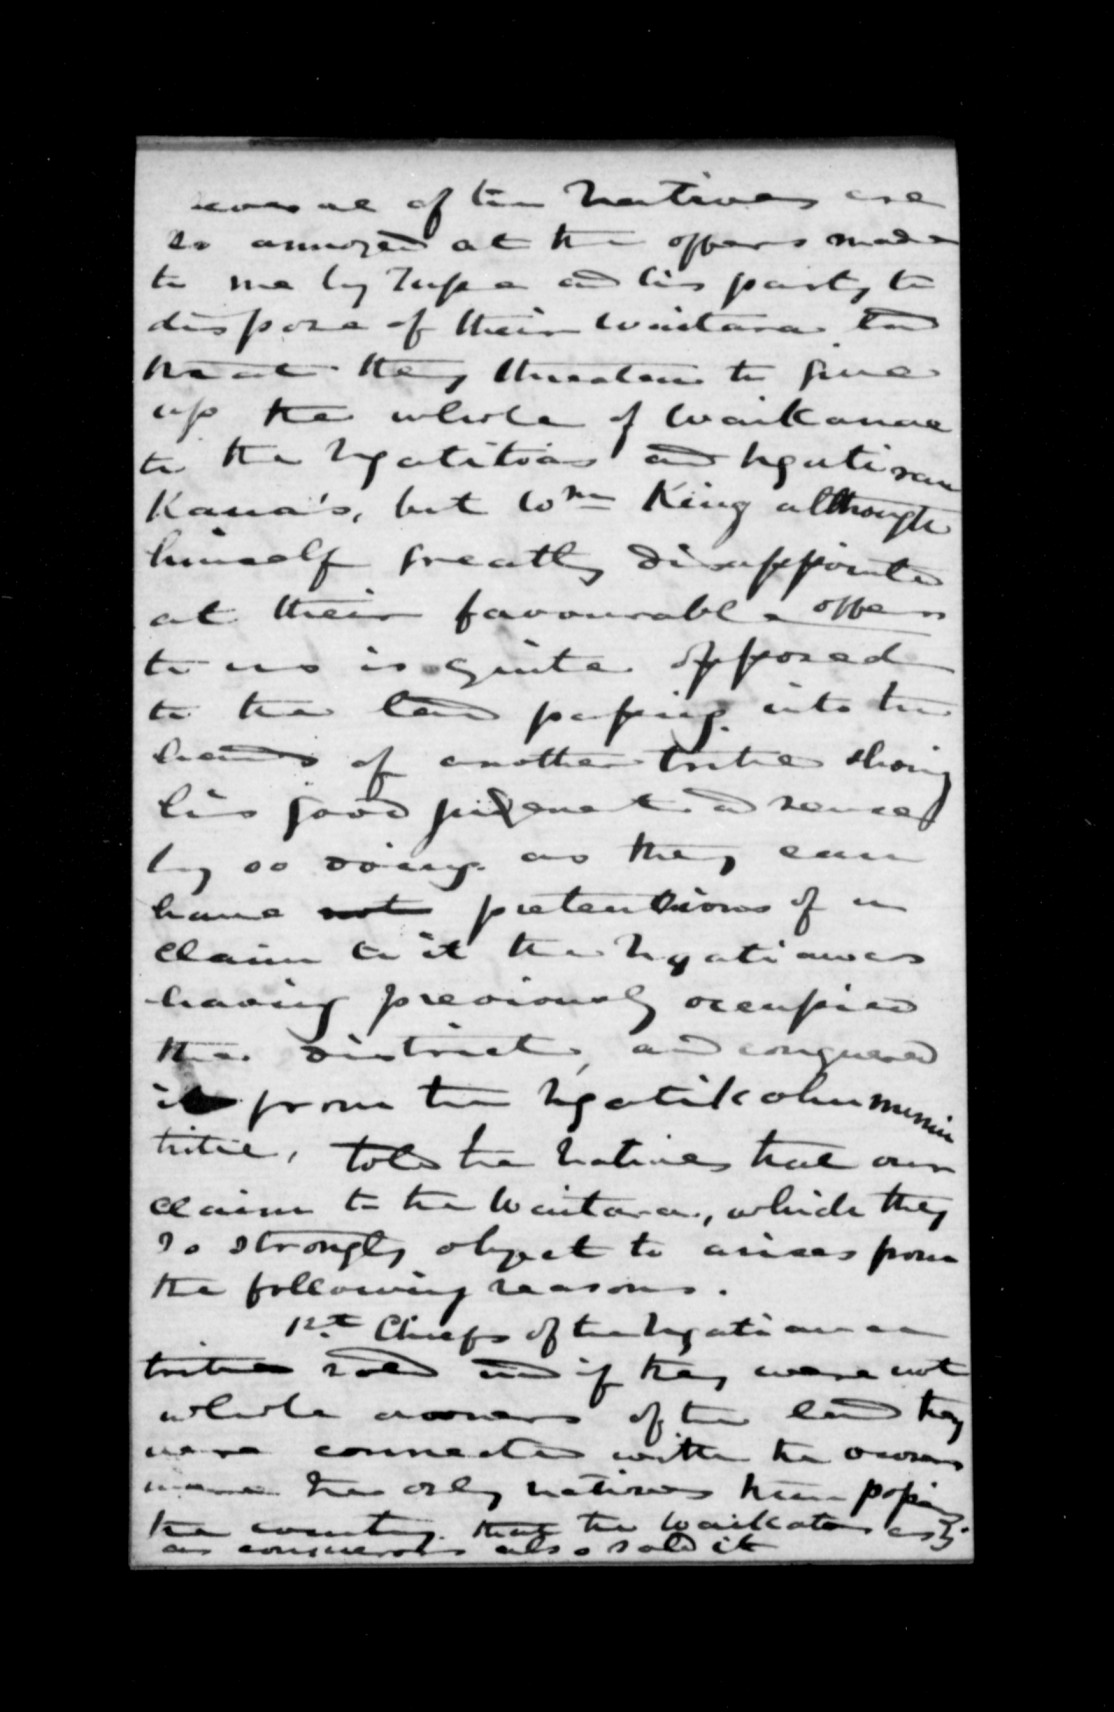 of the Natives are
so annoyed at the offers made
to me by Tupe and his party to
dispose of their Waitara land
that they threaten to give
up the whole of Waikanae
to the Ngatitoas and Ngatirau
Kaua's, but Wm King although
himself greatly disappointed
at their favourable offers
to us is quite opposed
to the land passing into the
hands of another tribe showing
his good judgement and sense
by so doing as they can
have not pretentions of a
claim to it the Ngatiawas
having previously occupied
the district, and conquered
it from the Ngatikahu
tribe, told the Natives that our
claim to the Waitara, which they
so strongly object to arises from
the following reasons.
1st Chiefs of the Ngatiawa
tribe sold and if they were not
whole owners of the land they
were connected with the owners
were the only natives then
the country that the Waikatos as
as conquerors also sold it